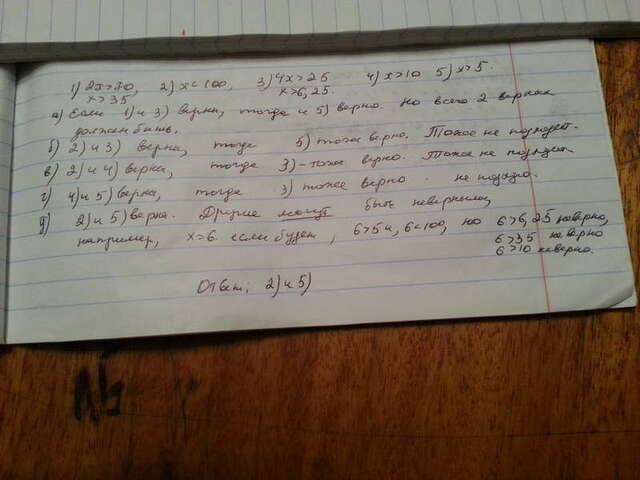 1) 2x>70, 2) x<100, 3) 4x>25 4) x>10 5) x>5.
x>35 x>6,25
а) Если 1) и 3) верны, тогда и 5) верно. Но всего 2 верных
должно быть.
б) 2) и 3) верны, тогда 5) тоже верно. Тоже не подходит.
в) 2) и 4) верны, тогда 3) - тоже верно. Тоже не подходит.
г) 4) и 5) верны, тогда 3) тоже верно. не подходит.
д) 2) и 5) верны. Другие могут быть неверными,
например, x=6. если будем, 6>5 и, 6<100, но 6>6,25 неверно,
6>35 неверно
6>10 неверно.
Ответ: 2) и 5)